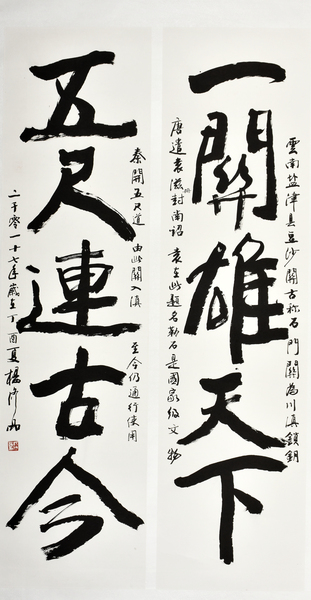 雲南盐津县豆沙関古称石门關為川滇鎖鑰
一關雄天下
唐遣袁滋封南诏 袁至此題名勒石是國家级文物
秦開五尺道 由此關入滇 至今仍通行使用
五尺連古今
二千零一十七年歲在丁酉夏楊